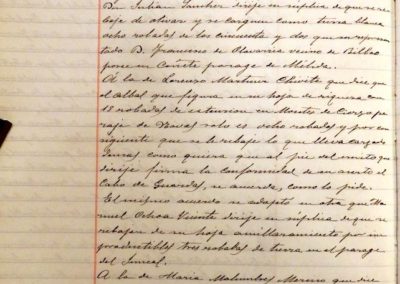 Don Julian Sanchez dirije en súplica de que se re
baje de olivar y se carguen como tierra blanca
ocho robadas de las cincuenta y dos que su represen
tado D. Francisco de Olavarria vecino de Bilbao
posee en Cañete parage de Mélida.
A la de Lorenzo Martinez Chivite que dice que
el albal que figura en su hoja de riqueza con
18 robadas de extension en Montes de Cierzo pa
raje de Navas solo es ocho robadas y por con
siguiente que se le rebaje lo que lleva cargado
demas, como quiera que al pie del escrito que
dirije firma la conformidad de su aserto el
Cabo de Guardas, se acuerda, como lo pide.
El mismo acuerdo se adaptó en otra que Ma
nuel Ochoa Vicente dirije en súplica de que se
rebajen de su hoja amillaramiento por im
productibles tres robadas de tierra en el parage
del
A la de Maria Malumbres Moreno que dice